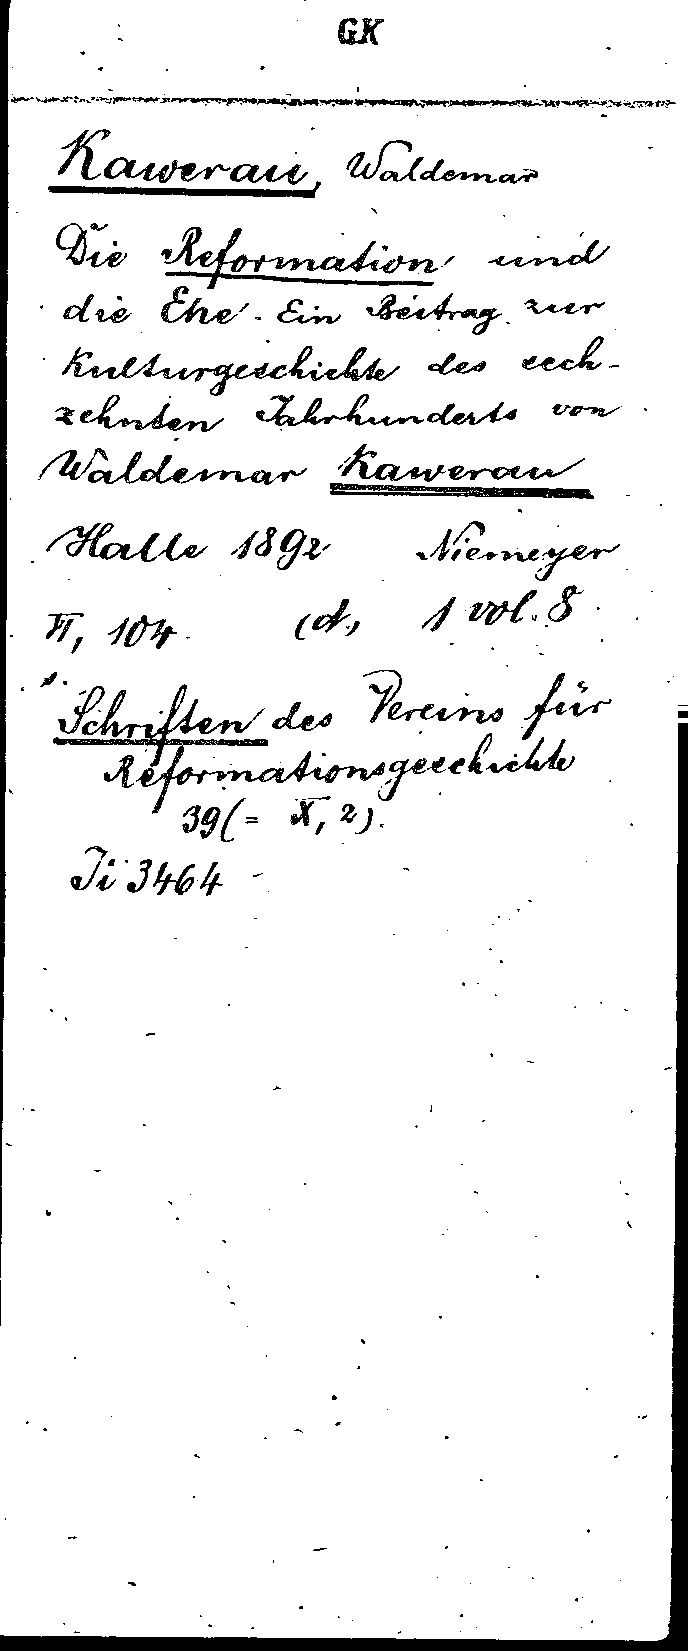 GK
Kawerau, Waldemar
Die Reformation und
die Ehe. Ein Beitrag zur
Kulturgeschichte des sech-
zehnten Jahrhunderts von
Waldemar Kawerau
Halle 1892 Niemeyer
VI, 104 (d, 1 vol. 8
Schriften des Vereins für
Reformationsgeschichte
39 (= X, 2).
Ji 3464